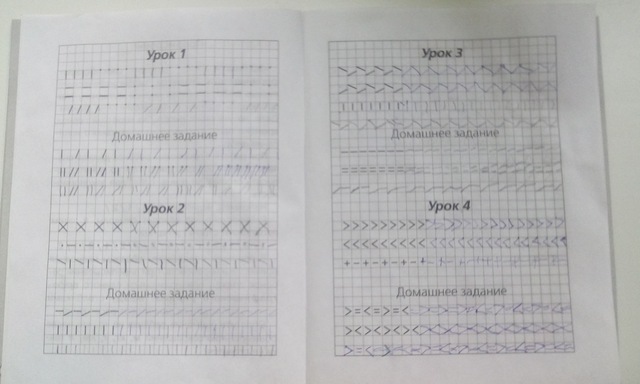 Урок 1
Домашнее задание
Урок 2
Домашнее задание
Урок 3
Домашнее задание
Урок 4
> > > > > > > > >
< < < < < < < < <
+ - + - + - + - +
Домашнее задание
> = < = > = <
> < > < > < > <
> = <